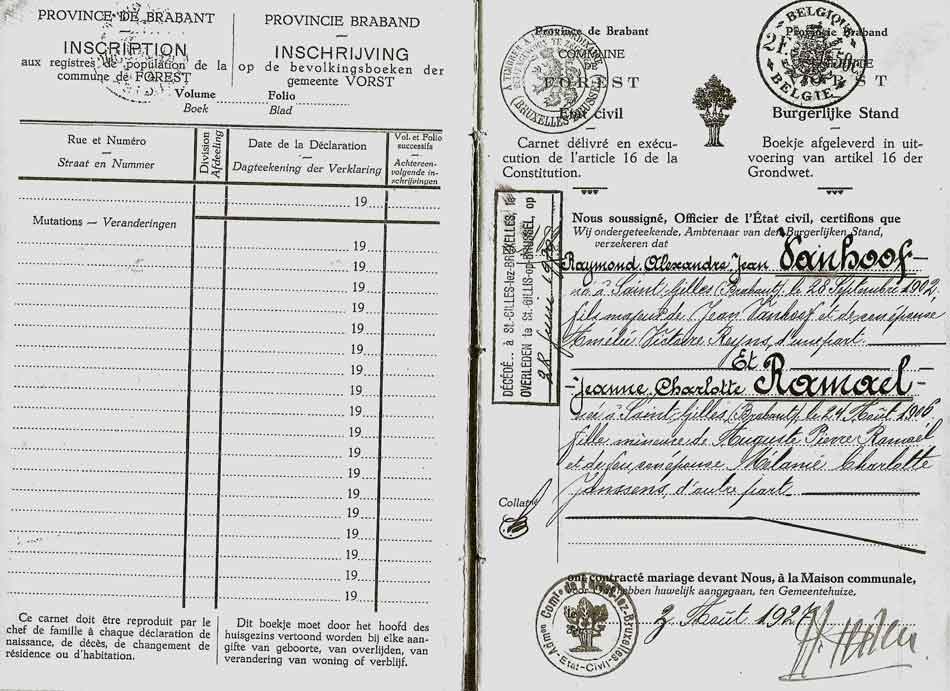 PROVINCE DE BRABANT
INSCRIPTION
aux registres de population de la
commune de FOREST
PROVINCIE BRABAND
INSCHRIJVING
op de bevolkingsboeken der
gemeente VORST
Volume Folio
Boek Blad
Rue et Numéro
Straat en Nummer
Division
Afdeeling
Date de la Déclaration
Dagteekening der Verklaring
Vol. et Folio
successifs
Achtereen-
volgende in-
schrijvingen
19
Mutations — Veranderingen
19
19
19
19
19
19
19
19
19
19
19
19
19
19
19
19
19
19
Ce carnet doit être reproduit par le
chef de famille à chaque déclaration de
naissance, de décès, de changement de
résidence ou d'habitation.
Dit boekje moet door het hoofd des
huisgezins vertoond worden bij elke aan-
gifte van geboorte, van overlijden, van
verandering van woning of verblijf.
Province de Brabant
COMMUNE
DE
FOREST
Etat civil
Carnet délivré en exécu-
cution de l'article 16 de la
Constitution.
Provincie Braband
Burgerlijke Stand
Boekje afgeleverd in uit-
voering van artikel 16 der
Grondwet.
BRUXELLES-BRUSSEL
BELGIQUE
2F 50c
BELGIË
Nous soussigné, Officier de l'État civil, certifions que
Wij ondergeteekende, Ambtenaar van den Burgerlijken Stand,
verzekeren dat
Raymond Alexandre Jean Vanhoof
né à Saint Gilles (Brabant), le 28 Septembre 1902,
fils majeur de Jean Vanhoof et de son épouse
Amélie Victoire Reyns, d'une part.
Et
Jeanne Charlotte Ramael
née à Saint Gilles (Brabant), le 24 Août 1906
fille mineure de Auguste Pierre Ramaël
et de feu son épouse Mélanie Charlotte
Janssens, d'autre part
DÉCÉDÉ... à St.-GILLES-lez-BRUXELLES, le
OVERLEDEN te St.-GILLIS-op-BRUSSEL, op
28 Juin
Collat
ont contracté mariage devant Nous, à la Maison communale,
hebben huwelijk aangegaan, ten Gemeentehuize.
Août 1927
Adm on Com le de Forest-lez-Bruxelles
Etat-Civil